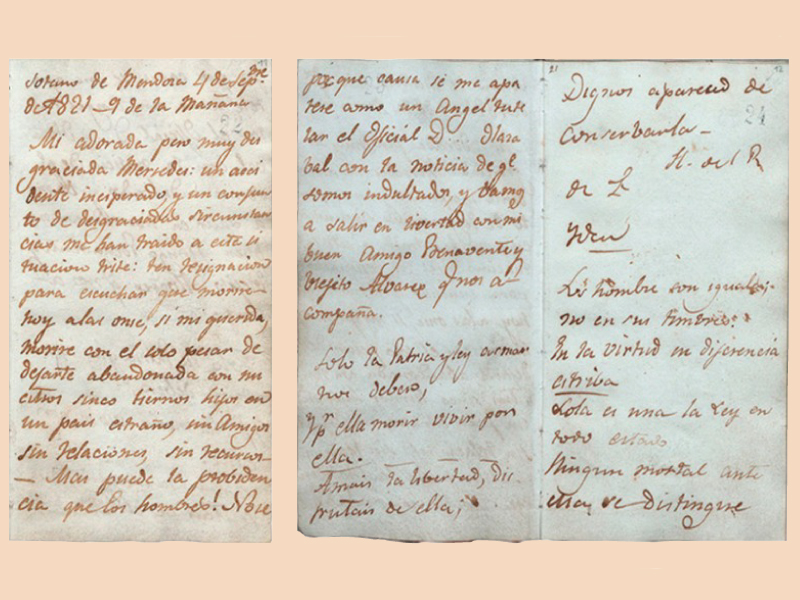 Sotano de Mendosa 4 de Sepe.
de 1821_9 de la Mañana
22
Mi adorada pero muy des
graciada Mersedes: un acci
dente inesperado, y un conjun
to de desgraciadas sircunstan
cias, me han traido a esta si
tuacion triste: ten resignacion
para escuchar que morire
hoy a las onse, si mi querida,
morire con el solo pesar de
dejarte abandonada con nu
estros sinco tiernos hijos en
un pais estraño, sin Amigos
sin relaciones, sin recursos_
_ Mas puede la probiden
cia que los hombres! No se
por que causa se me apa
rese como un Angel tute
lar el Oficial D... Olaza
bal con la noticia de qe.
somos indultados, y vamos
a salir en livertad con mi
buen Amigo Benavente y
viejito Alvarez q. nos a
compaña.
Solo la Patria y ley amar
nos debeis,
Y pr. ella morir vivir por
ella.
Amais la libertad, dis-
frutais de ella;
21
Dignos aparecid de
conservarla_
24
H. del R
de L
Yden
Los hombre son iguales;
no en sus timbres:
En la virtud su diferencia
estriba
Sola es una la Ley en
todo estado
Ningun mortal ante
ella, se distingue